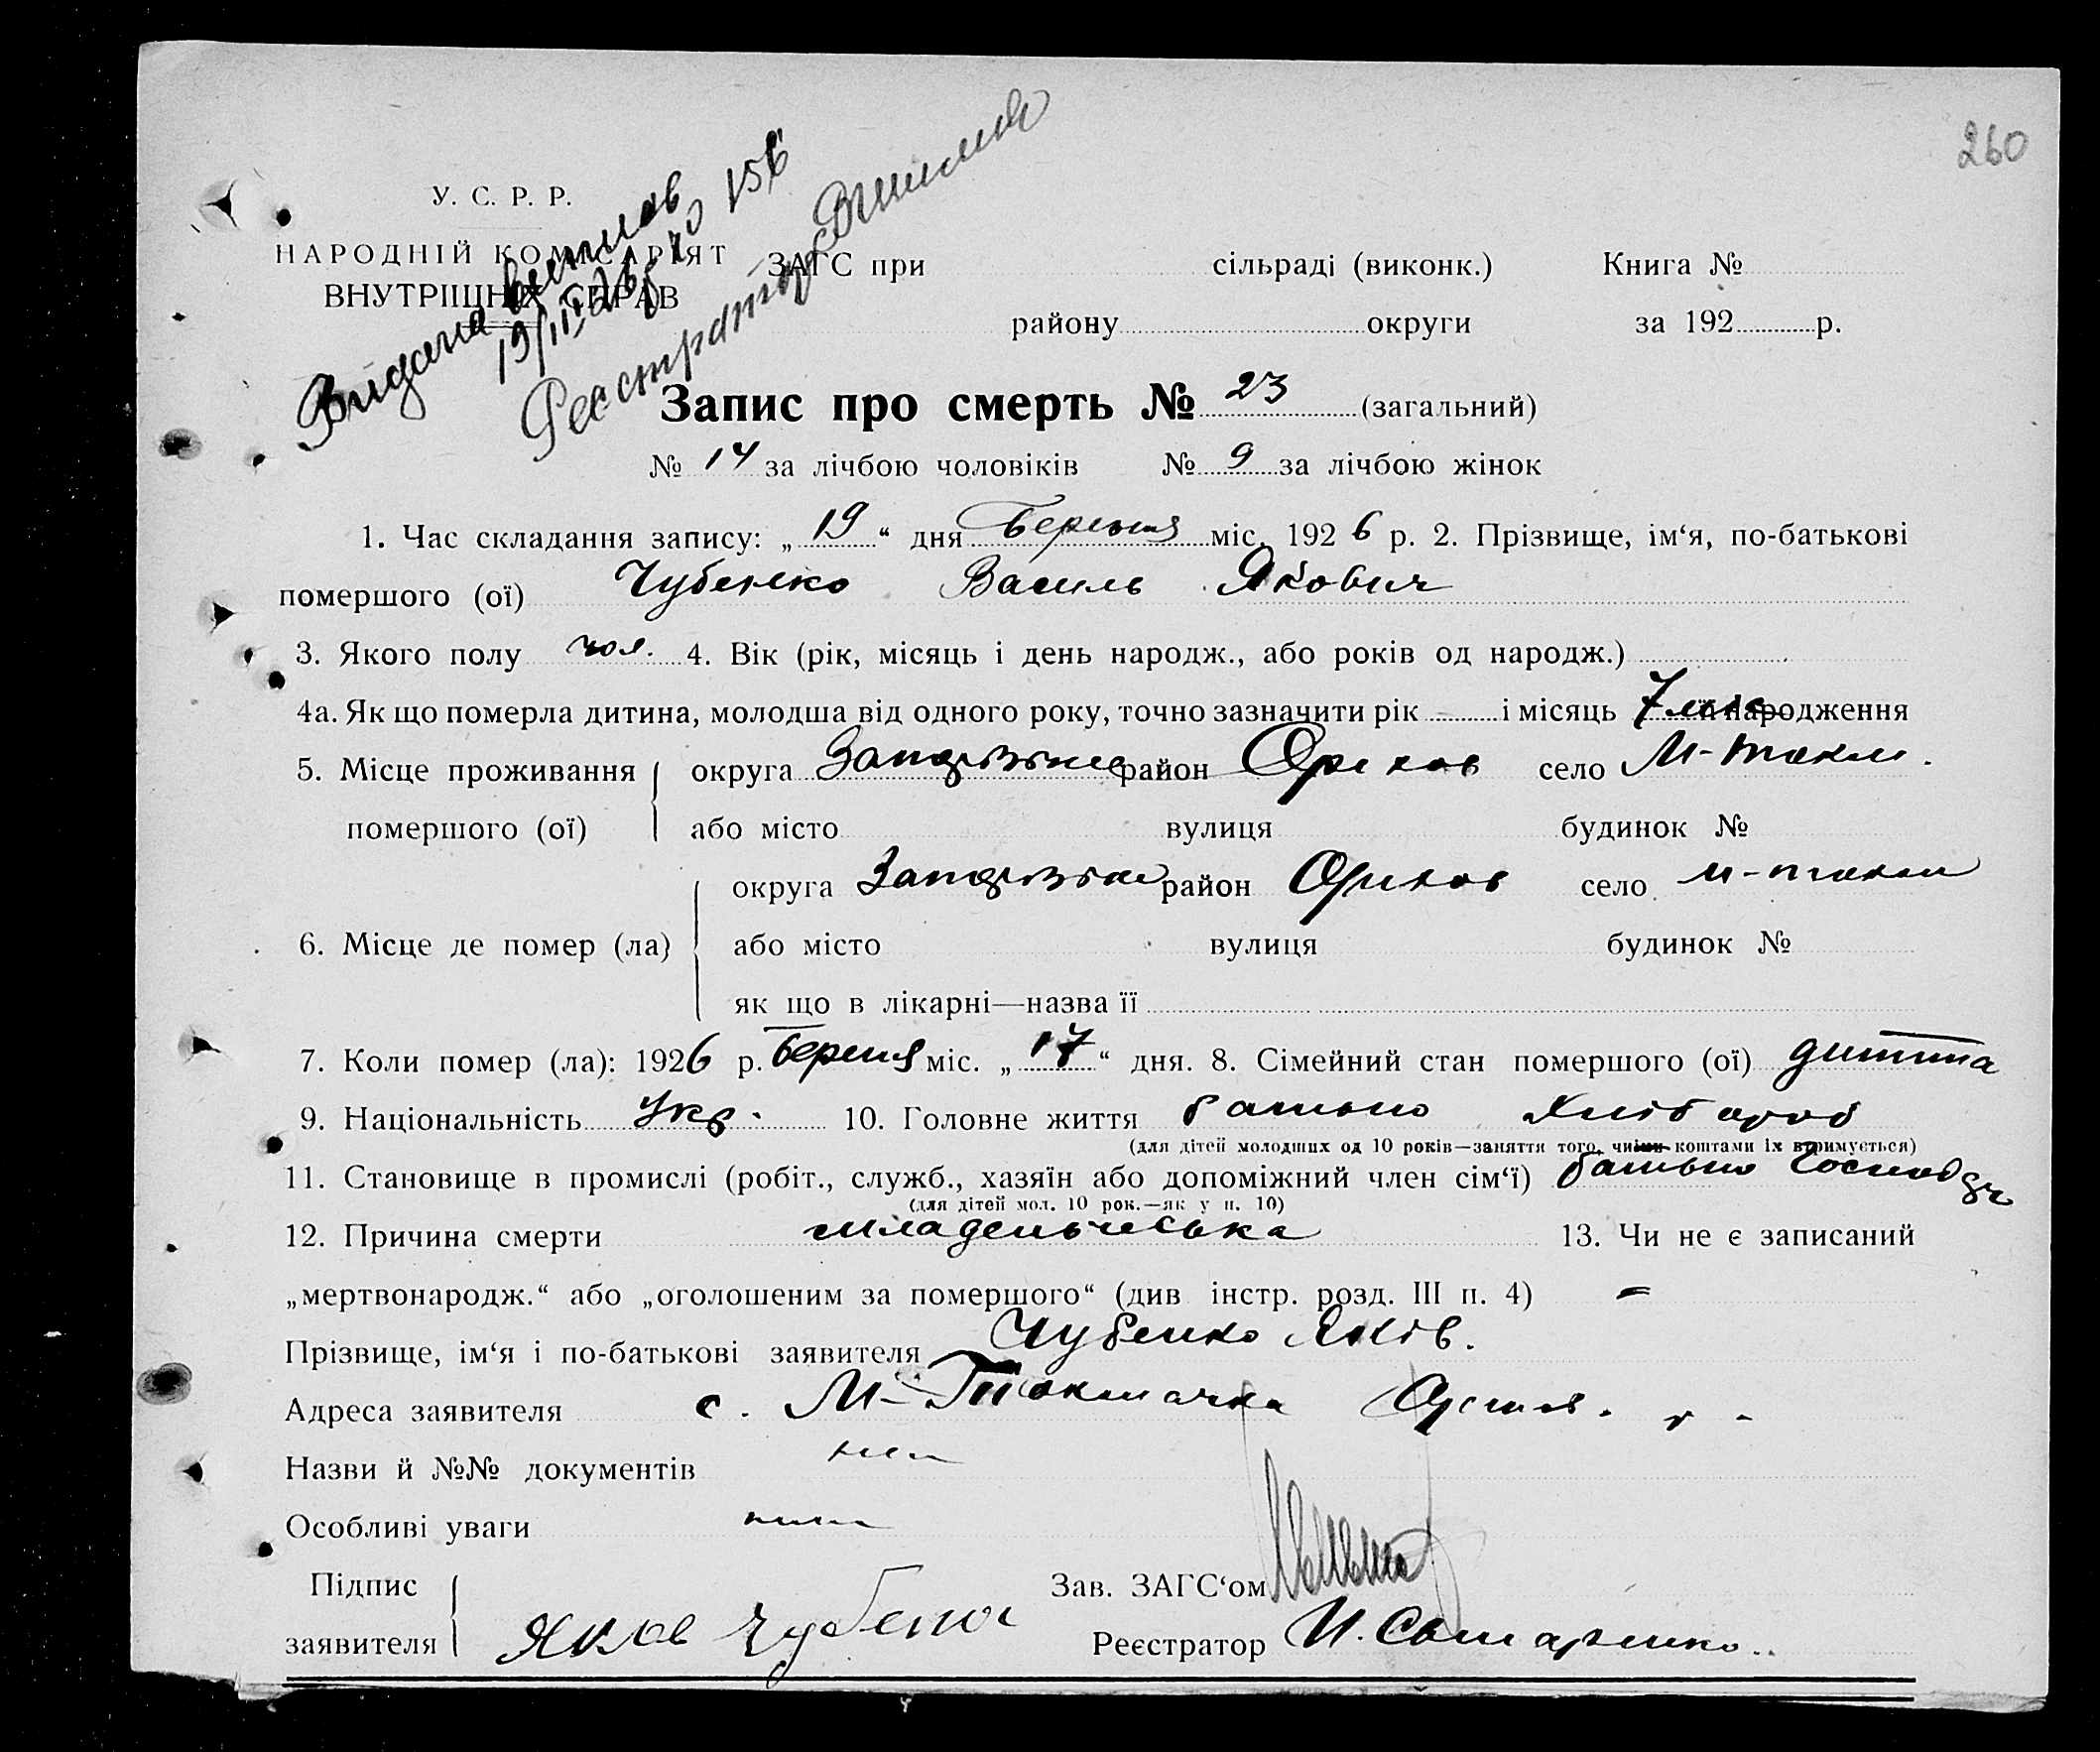 260
У. С. Р. Р.
НАРОДНІЙ КОМІСАРІЯТ
ВНУТРІШНІХ СПРАВ
Видана
19/III 26 р. 156
Реєстратор
ЗАГС при сільраді (виконк.) Книга №
району округи за 192 р.
Запис про смерть № 23 (загальний)
№ 14 за лічбою чоловіків № 9 за лічбою жінок
1. Час складання запису: „19“ дня березня міс. 1926 р. 2. Прізвище, ім‘я, по-батькові
помершого (ої) Чубенко Василь Якович
3. Якого полу чол. 4. Вік (рік, місяць і день народж., або років од народж.)
4а. Як що померла дитина, молодша від одного року, точно зазначити рік і місяць 7 міс народження
5. Місце проживання округа Запоріжжє район Орихов село М-токм.
помершого (ої) або місто вулиця будинок №
округа Запоріжжє район Орихов село м-токм
6. Місце де помер (ла) або місто вулиця будинок №
як що в лікарні—назва її
7. Коли помер (ла): 1926 р. березня міс. „17“ дня. 8. Сімейний стан помершого (ої) дитина
9. Національність Укр. 10. Головне життя батько хлібороб
(для дітей молодших од 10 років—заняття того, чиїми коштами їх втримується)
11. Становище в промислі (робіт., служб., хазяїн або допоміжний член сім‘ї) батько
(для дітей мол. 10 рок.—як у п. 10)
12. Причина смерти младенческа 13. Чи не є записаний
„мертвонародж.“ або „оголошеним за помершого“ (див інстр. розд. III п. 4) –
Прізвище, ім‘я і по-батькові заявителя Чубенко Яків.
Адреса заявителя с. М-Токмачка
Назви й №№ документів
Особливі уваги
Підпис Зав. ЗАГС‘ом
заявителя Яков Чубенко Реєстратор